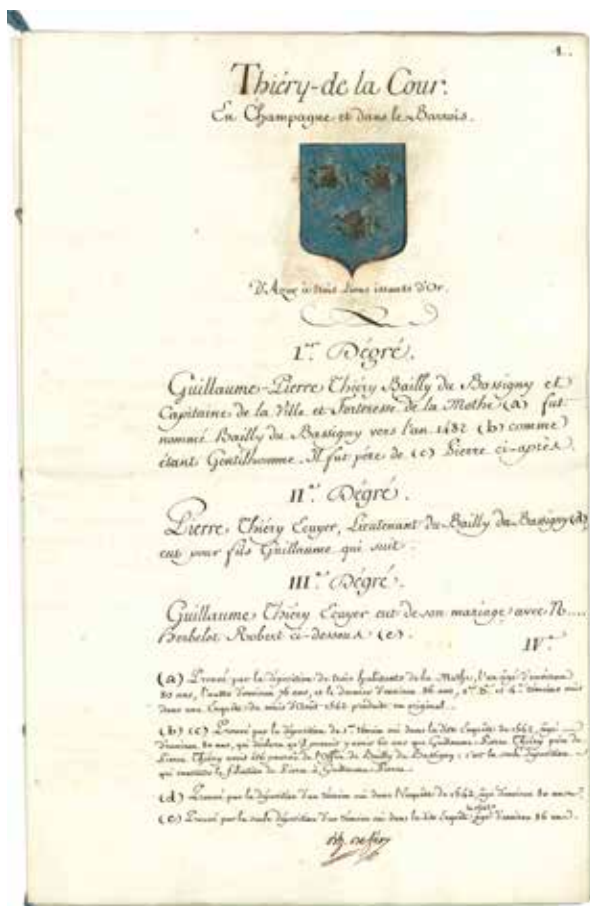 1.
Thiéry-de la Cour.
En Champagne et dans le Barrois.
D'Azur à trois Lions issants d'Or.
I.er Dégré.
Guillaume-Pierre Thiéry Bailly du Bassigny et
Capitaine de la Ville et Forteresse de la Mothe (a) fut
nommé Bailly du Bassigny vers l'an 1482 (b) comme
étant Gentilhomme. Il fut père de (c) Pierre ci-après.
II.e Dégré.
Pierre Thiéry Ecuyer, Lieutenant du Bailly du Bassigny (d)
eut pour fils Guillaume qui suit.
III.e Dégré.
Guillaume Thiéry Ecuyer eut de son mariage avec N....
Herbelot Robert ci-dessous (e).
IV.e
(a) Prouvé par la déposition de trois habitants de la Mothe, l'un âgé d'environ
80 ans, l'autre d'environ 76 ans, et le dernier d'environ 86 ans, et 4.e témoins ouis
dans une Enquête du mois d'Août 1562 produite en original.
(b) (c) Prouvé par la déposition du 1.er témoin oui dans la dite Enquête de 1562, âgé
d'environ 80 ans, qui déclara qu'il y avoit 60 ans que Guillaume-Pierre Thiéry père de
Pierre Thiéry avoit été pourvu de l'Office de Bailly du Bassigny; c'est la seule déposition
qui la filiation de Pierre à Guillaume-Pierre.
(d) Prouvé par la déposition d'un témoin oui dans l'enquête de 1562, âgé d'environ 80 ans.
(e) Prouvé par la seule déposition d'un témoin oui dans la dite Enquête âgé d'environ 86 ans.